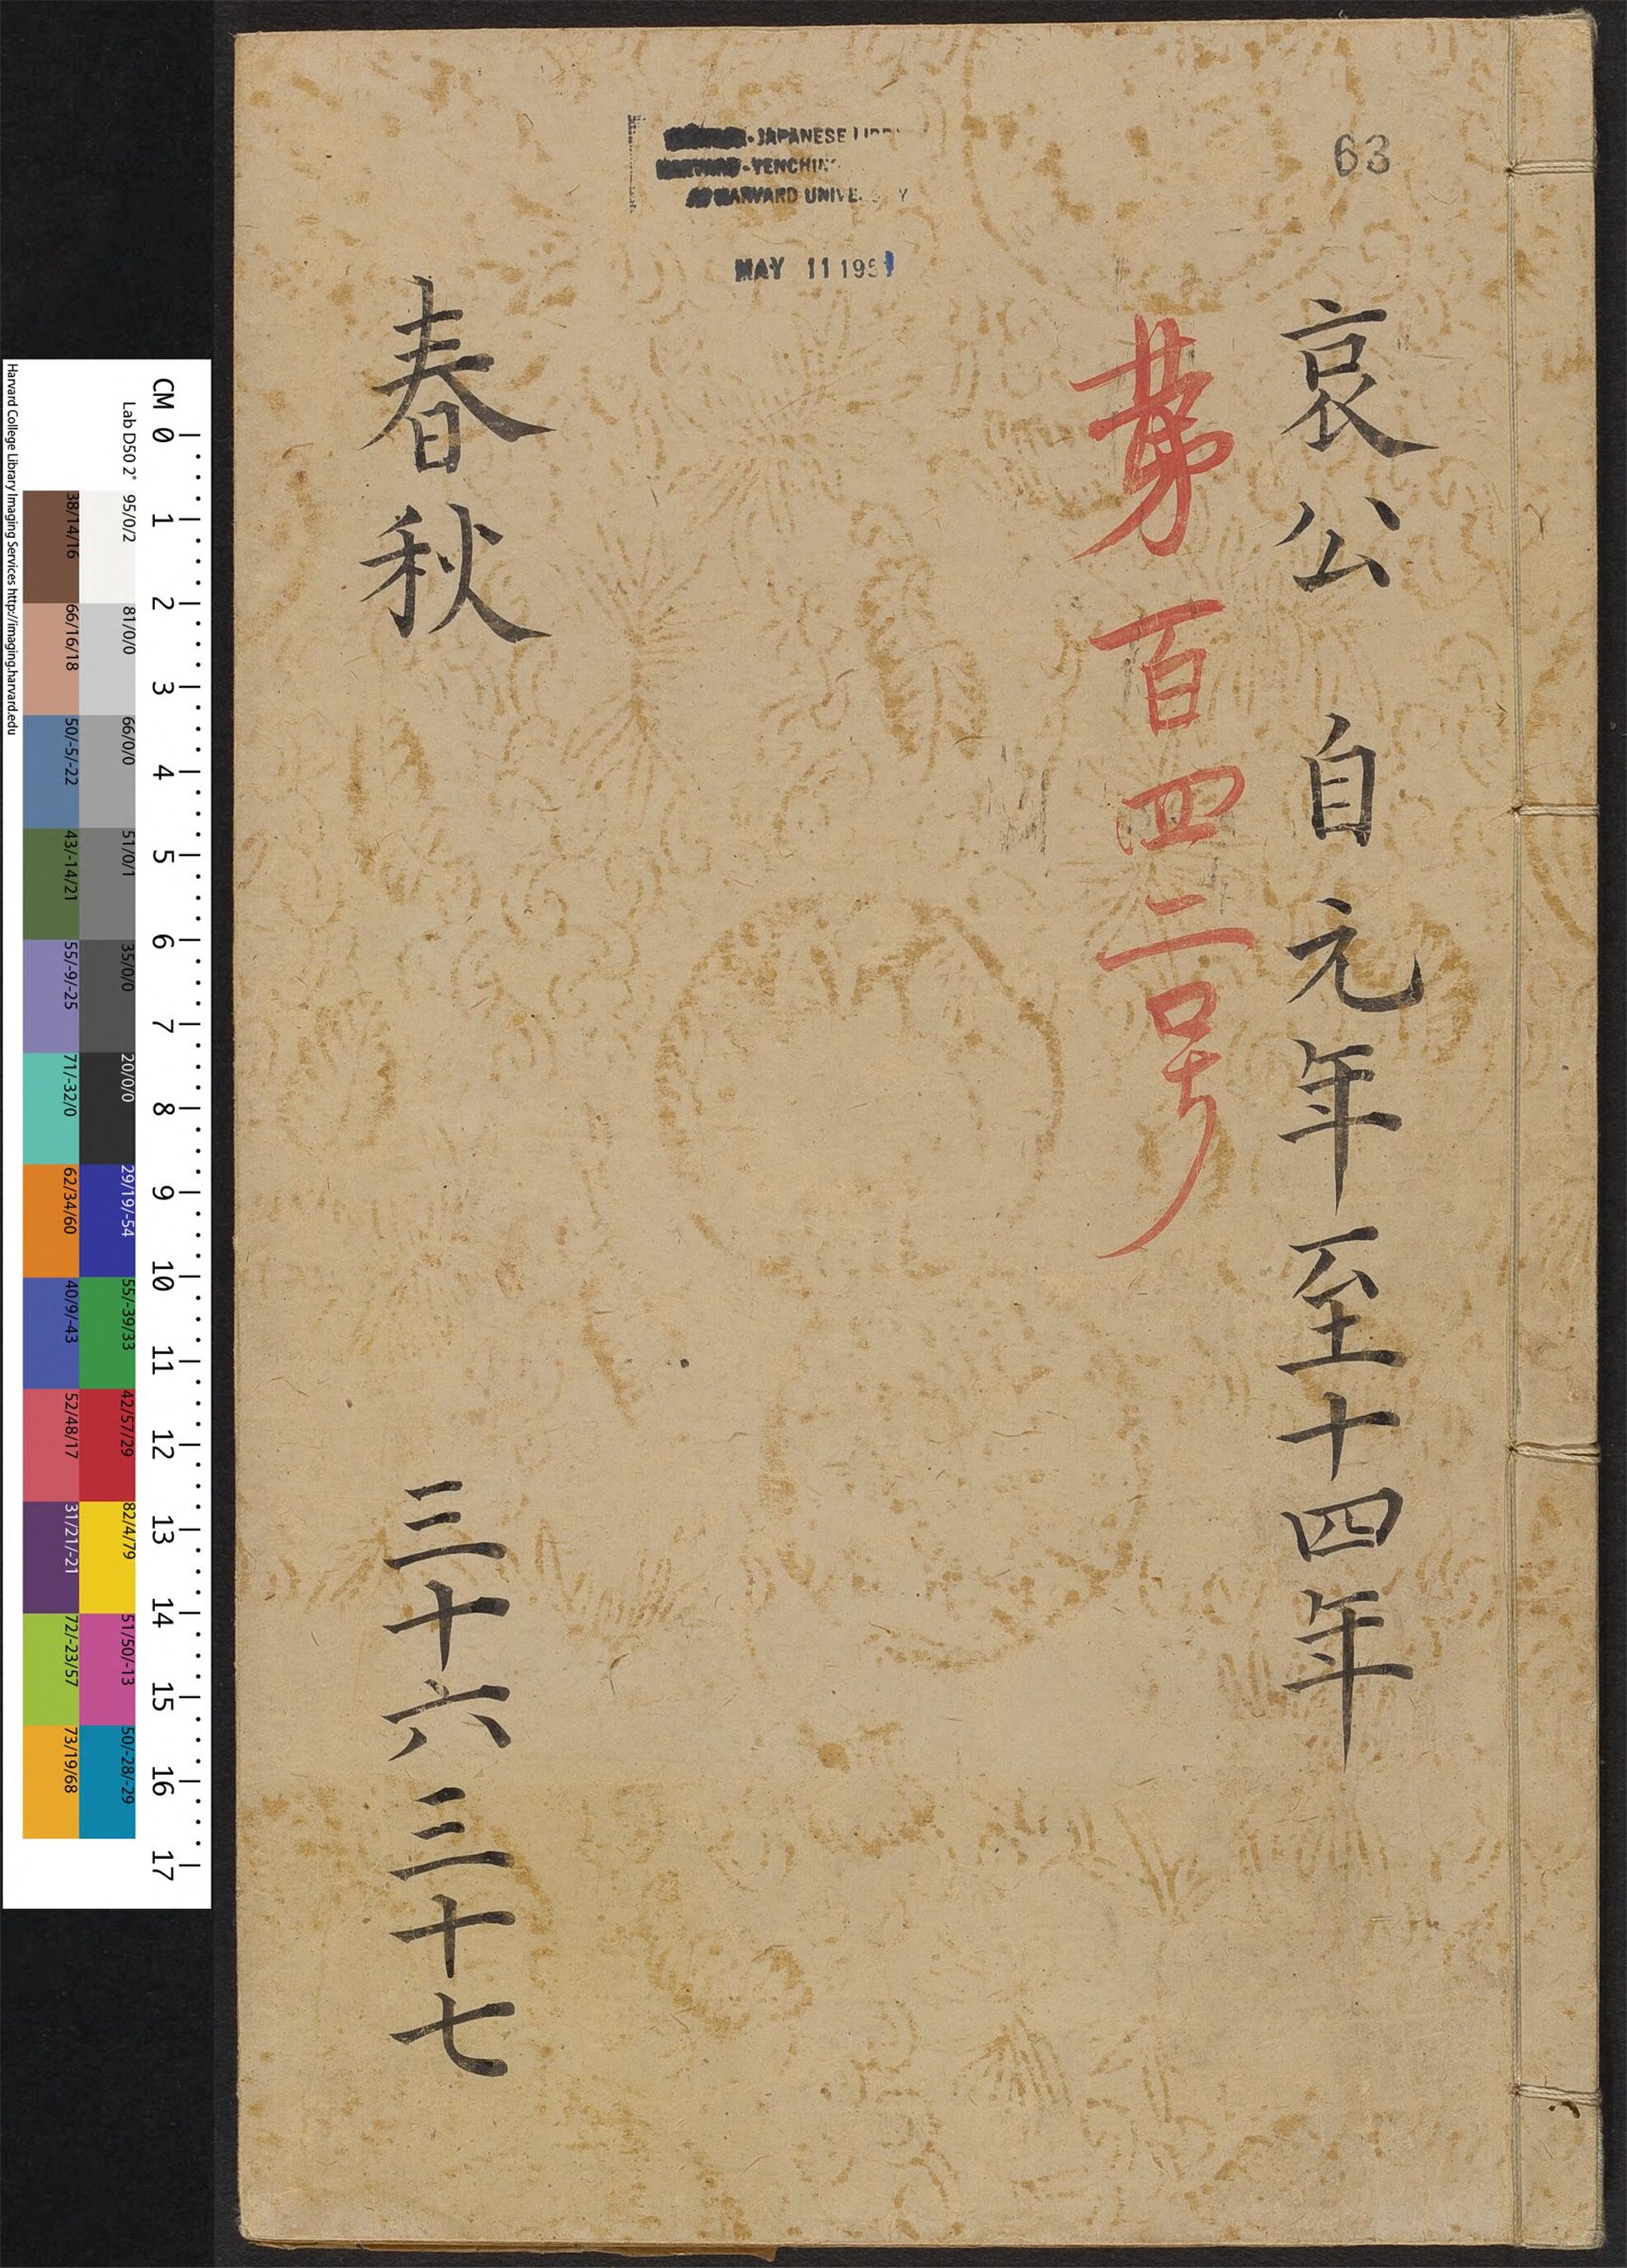 63
哀公 自元年至十四年
第百四二号
-JAPANESE
-YENCHIN
HARVARD
MAY 11 1951
春秋 三十六 三十七
CM 0 1 2 3 4 5 6 7 8 9 10 11 12 13 14 15 16 17
Lab D50 2° 95/0/2 81/0/0 66/0/0 51/0/1 35/0/0 20/0/0 29/19/-54 55/-39/33 42/57/29 82/4/79 51/50/-13 50/-28/-29
38/14/16 66/16/18 50/-5/-22 43/-14/21 55/-9/-25 71/-32/0 62/34/60 40/9/-43 52/48/17 31/21/-21 72/-23/57 73/19/68
Harvard College Library Imaging Services http://imaging.harvard.edu